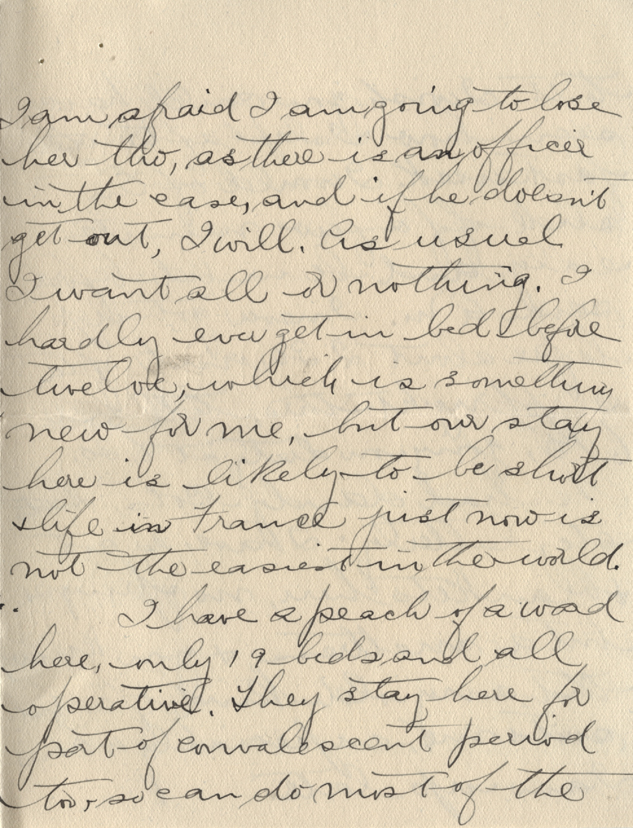 I am afraid I am going to lose
her tho, as there is an officer
in the case, and if he doesn't
get out, I will. As usual
I want all or nothing. I
hardly ever get in bed before
twelve, which is something
new for me, but our stay
here is likely to be short
& life in France just now is
not the easiest in the world.
I have a peach of a ward
here, only 19 beds and all
operative. They stay here for
part of convalescent period
too, so can do most of the